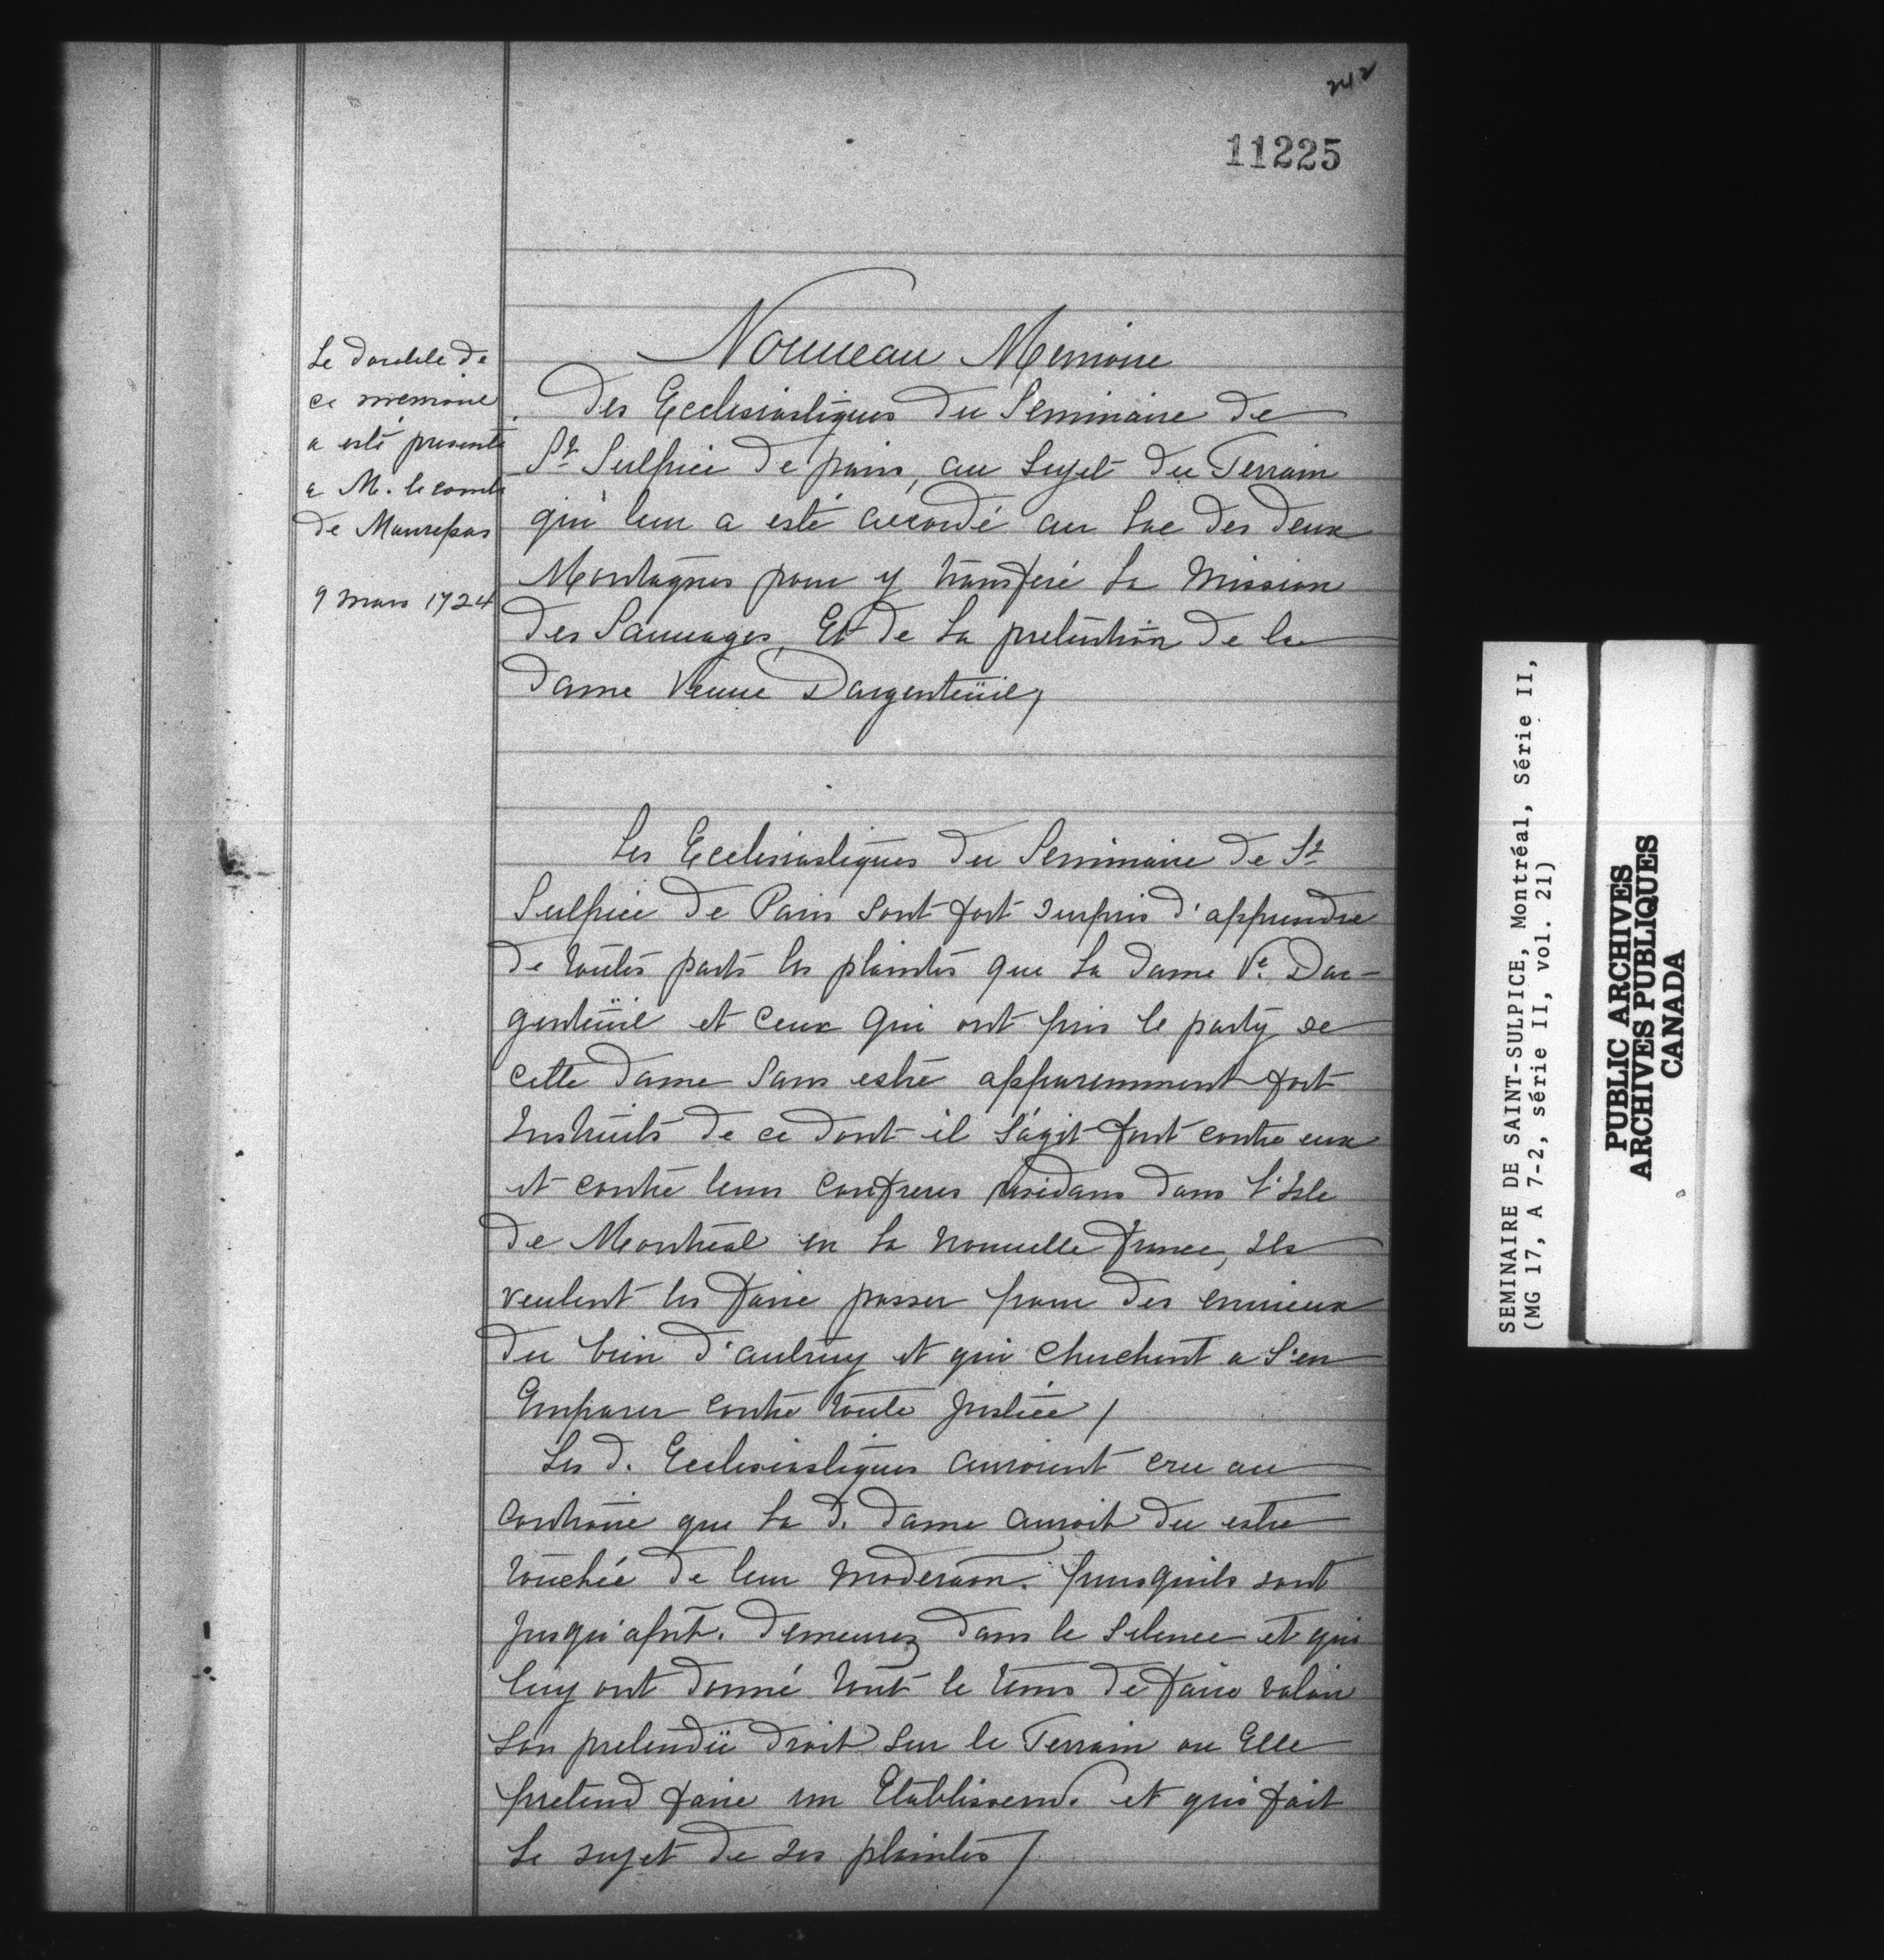 242
11225
Le double de
ce memoire
a esté presenté
a M. le comte
de Maurepas
9 mars 1724
Nouveau Memoire
Des Ecclesiastiques du Seminaire de
St Sulpice de paris, au sujet du Terrain
qui leur a esté accordé au Lac des deux
Montagnes pour y transferé La Mission
des Sauuages, Et de La pretention de la
Dame Veuue Dargenteüil,
Les Ecclesiastiques du Seminaire de St
Sulpice de Paris sont fort surpris d'apprendre
de toutes parts les plaintes que La Dame Ve Dar-
genteüil et ceux qui ont pris le party de
cette Dame Sans estre apparemment fort
Instruits de ce dont il s'agit font contre eux
et contre leurs confreres residans dans l'Isle
de Montreal en La nouuelle france, Ils
veulent les faire passer pour des enuieux
du bien d'autruy et qui cherchent a s'en
Emparer contre toute Justice /
Les d. Ecclesiastiques auroient cru au
contraire que La d. Dame auroit du estre
touchée de leur moderaon. puisquils sont
Jusqu'aprt. demeurez dans le silence et qui
luy ont donné tout le tems de faire valoir
Son pretendü droit sur le Terrain ou Elle
pretend faire un Etablissem. et qui fait
Le sujet de ses plaintes /
SEMINAIRE DE SAINT-SULPICE, Montréal, Série II,
(MG 17, A 7-2, série II, vol. 21)
PUBLIC ARCHIVES
ARCHIVES PUBLIQUES
CANADA